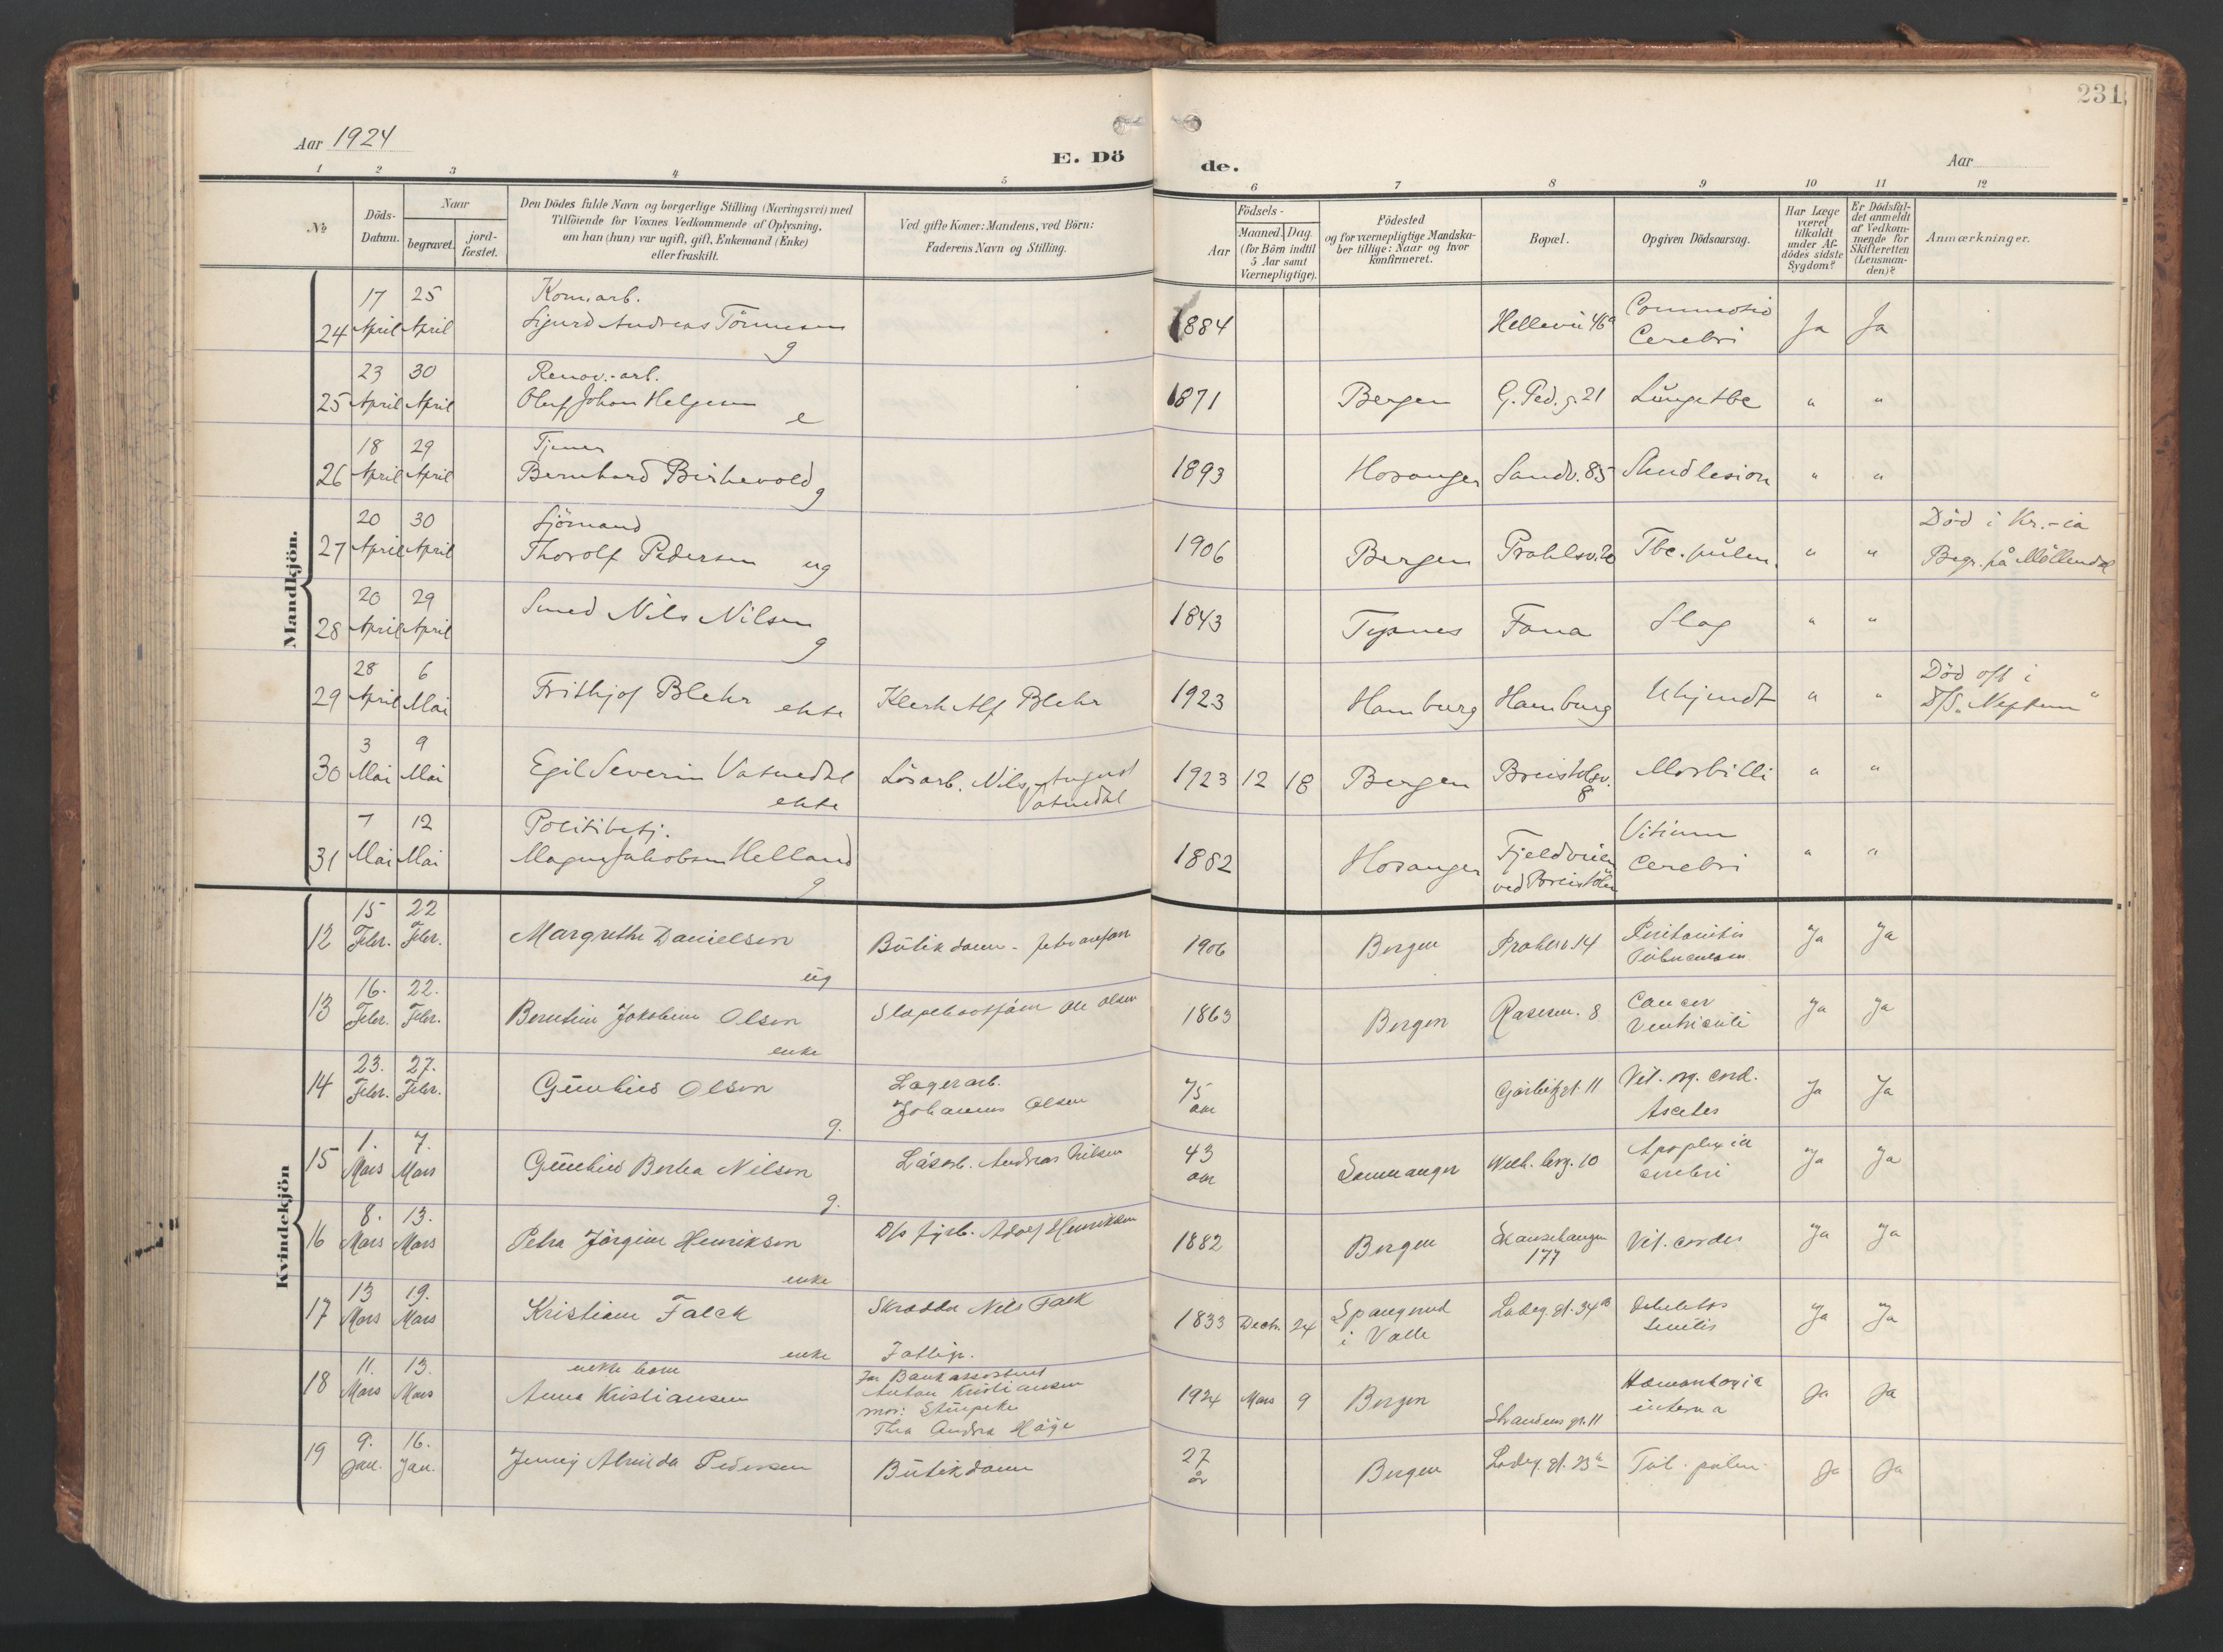 231
Aar 1924
E. Dö
de.
Aar
1 2 3 4 5 6 7 8 9 10 11 12
№
Döds-
Datum.
Naar
begravet.
jord-
fæstet.
Den Dödes fulde Navn og borgerlige Stilling (Næringsvei) med
Tilföiende for Voxnes Vedkommende af Oplysning,
om han (hun) var ugift, gift, Enkemand (Enke)
eller fraskilt.
Ved gifte Koner: Mandens, ved Börn:
Faderens Navn og Stilling.
Födsels-
Aar
Maaned. Dag.
(for Börn indtil
5 Aar samt
Værnepligtige).
Födested
og for værnepligtige Mandska-
ber tillige: Naar og hvor
konfirmeret.
Bopæl.
Opgiven Dödsaarsag.
Har Læge
været
tilkaldt
under Af-
dödes sidste
Sygdom?
Er Dödsfal-
det anmeldt
af Vedkom-
mende for
Skifteretten
(Lensman-
den)?
Anmærkninger.
Mandkjön.
24 17 April 25 April Kom. arb.
Sigurd Andreas Tönnesen g 1884 Helleveien 46a Commotio
Cerebri Ja Ja
25 23 April 30 April Renov.-arb.
Oluf Johan Helgesen e 1871 Bergen G. Ped. g. 21 Lungetbc " "
26 18 April 29 April Tjener
Bernhard Birkevold g 1893 Hosanger Sandv. 85 Skudlesion " "
27 20 April 30 April Sjömand
Thorolf Pedersen ug 1906 Bergen Prahlsv. 20 Tbc. pulm. " " Död i Kr.-ia
Begr. på Möllendal
28 20 April 29 April Smed Nils Nilsen g 1843 Tysnes Fana Slag " "
29 28 April 6 Mai Frithjof Blehr ekte Klerk Alf Blehr 1923 Hamburg Hamburg Ukjendt " " Död o/b i
D/S „Neptun"
30 3 Mai 9 Mai Egil Severin Vatnedal ekte Lösarb. Nils August
Vatnedal 1923 12 18 Bergen Breistölsv.
8 Morbilli " "
31 7 Mai 12 Mai Politibetj.
Magnus Jakobsen Helland g 1882 Hosanger Fjeldveien
ved Breistölen Vitium
Cerebri " "
Kvindekjön
12 15 Febr. 22 Febr. Margrethe Danielsen ug Butikdame 1906 Bergen Prahlsv. 14 Peritonitis
Tuberculosa Ja Ja
13 16. Febr. 22. Febr. Berntine Jakobine Olsen enke Ole Olsen 1863 Bergen 8 Cancer
Ventriculi Ja Ja
14 23. Febr. 27. Febr. Gunhild Olsen g. Lagerarb.
Johannes Olsen 75
aar 11 Vit. org. cord.
Ascites Ja Ja
15 1. Mars 7. Mars Gunhild Bertha Nilsen g. Lösarb. Andreas Nilsen 43
aar Samnanger Welh. berg. 10 Apoplexia
cerebri Ja Ja
16 8. Mars 13. Mars Petra Jörgine Henriksen enke D/s fyrb. Adolf Henriksen 1882 Bergen Skansehaugen
177 Vit. cordis Ja Ja
17 13 Mars 19. Mars Kristiane Falck enke Skrædder Nils Falck
Fattigu. 1833 Decbr. 24 Spangrud
i Valle Ladeg. gt. 34b Debilitas
Senilis Ja Ja
18 11. Mars 13. Mars uekte barn
Anna Kristiansen Far Bankassistent
Anton Kristiansen
mor: Stuepike
Thea Andrea Höge 1924 Mars 9 Bergen gt. 11
interna Ja Ja
19 9. Jan. 16. Jan. Jenny Alvilda Pedersen Butikdame 27
år Bergen Ladeg. gt. 23a Tub. pulm. Ja Ja